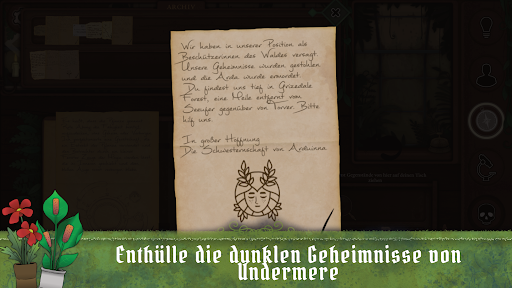 Wir haben in unserer Position als
Beschützerinnen des Waldes versagt.
Unsere Geheimnisse wurden gestohlen
und die Arda wurde ermordet.
Du findest uns tief in Grizedale
Forest, eine Meile entfernt vom
Seeufer gegenüber von Torver. Bitte
hilf uns.
In großer Hoffnung
Die Schwesternschaft von Arduinna
Enthülle die dunklen Geheimnisse von
Undermere